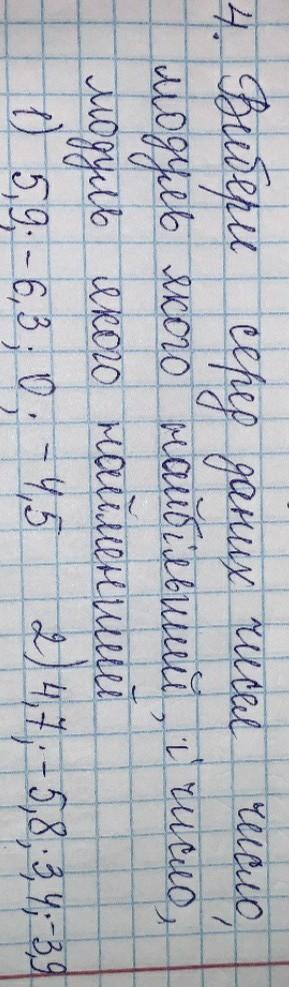 4. Вибери серед даних чисел число,
модуль якого найбільший, і число,
модуль якого найменший
1) 5,9; -6,3; 0; -4,5 2) 4,7; -5,8; 3,4; -3,9